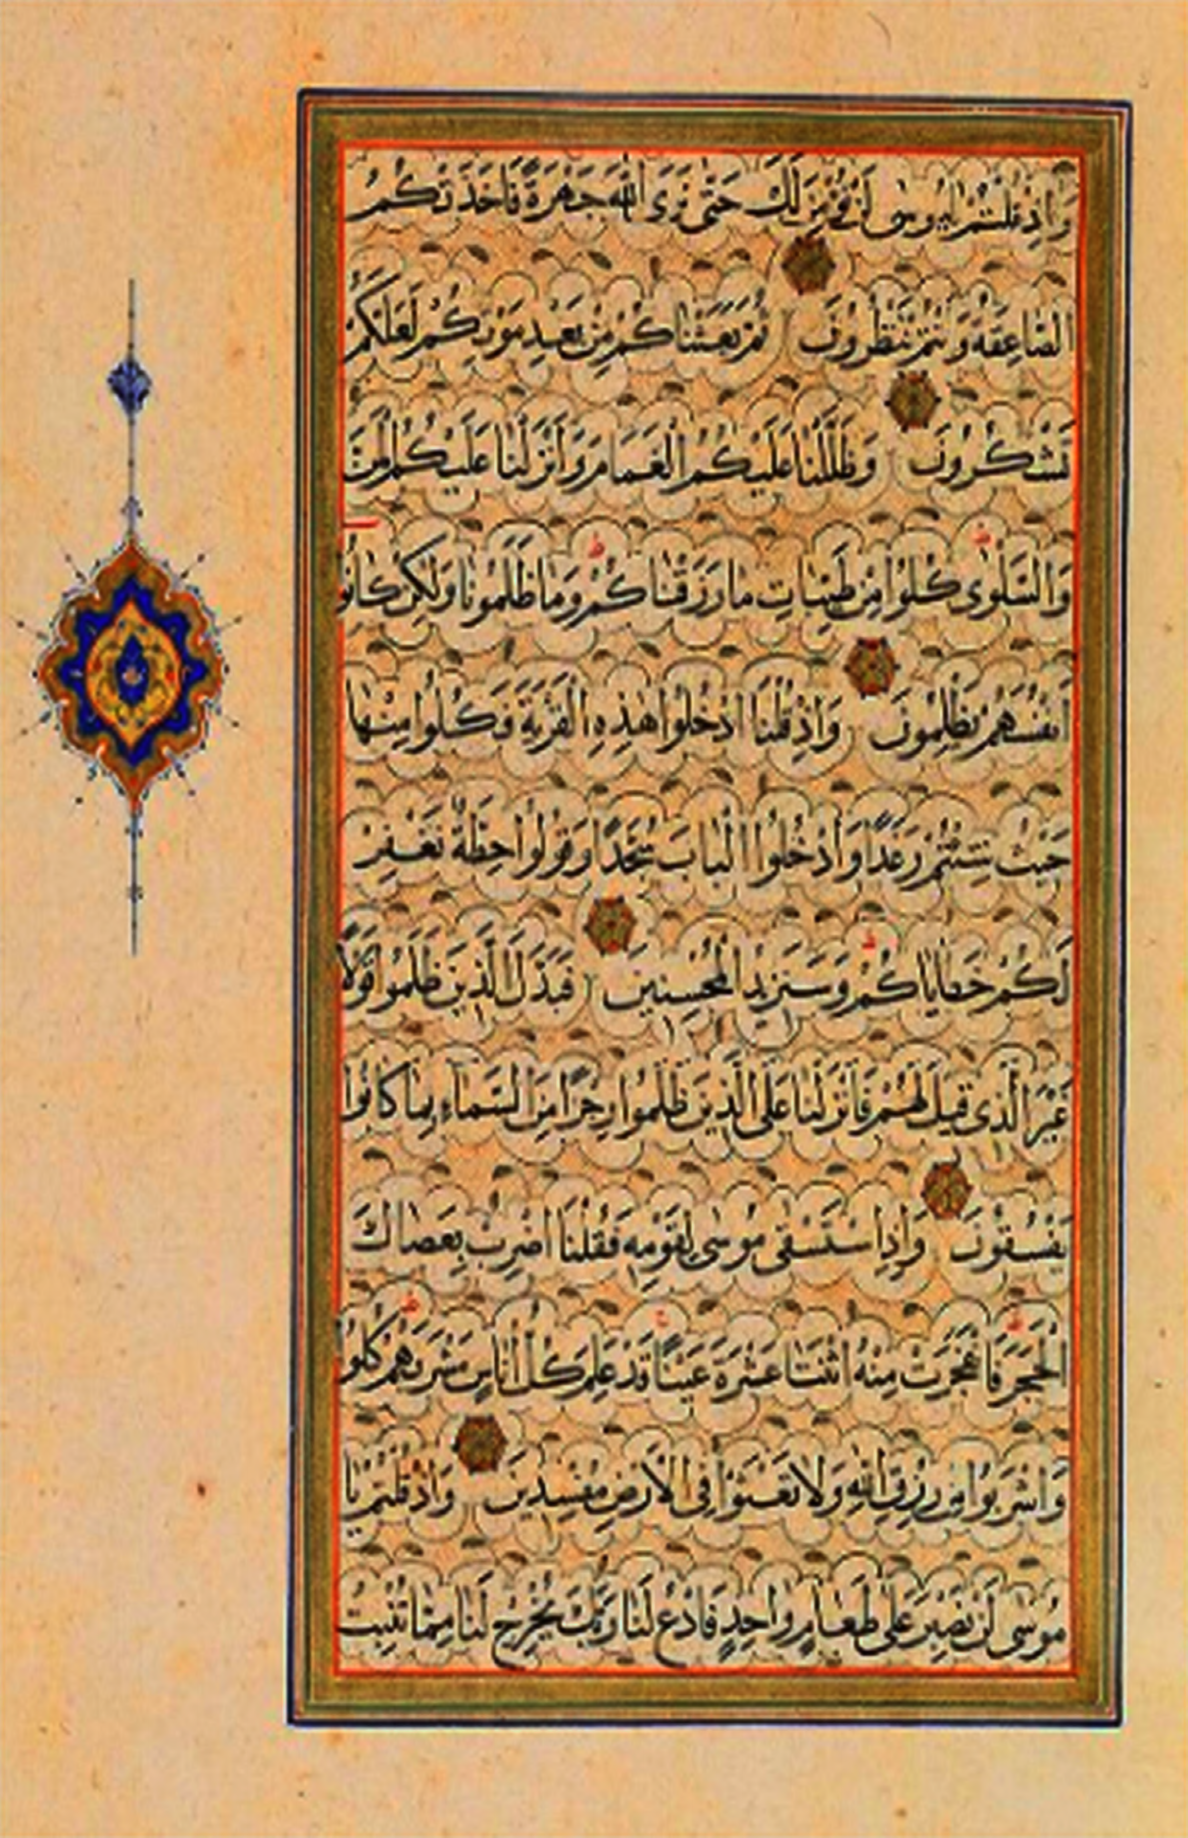 وَإِذْ قُلْتُمْ يَا مُوسَى لَنْ نُؤْمِنَ لَكَ حَتَّى نَرَى اللَّهَ جَهْرَةً فَأَخَذَتْكُمُ
الصَّاعِقَةُ وَأَنْتُمْ تَنْظُرُونَ ثُمَّ بَعَثْنَاكُمْ مِنْ بَعْدِ مَوْتِكُمْ لَعَلَّكُمْ
تَشْكُرُونَ وَظَلَّلْنَا عَلَيْكُمُ الْغَمَامَ وَأَنْزَلْنَا عَلَيْكُمُ الْمَنَّ
وَالسَّلْوَى كُلُوا مِنْ طَيِّبَاتِ مَا رَزَقْنَاكُمْ وَمَا ظَلَمُونَا وَلَكِنْ كَانُوا
أَنْفُسَهُمْ يَظْلِمُونَ وَإِذْ قُلْنَا ادْخُلُوا هَذِهِ الْقَرْيَةَ فَكُلُوا مِنْهَا
حَيْثُ شِئْتُمْ رَغَدًا وَادْخُلُوا الْبَابَ سُجَّدًا وَقُولُوا حِطَّةٌ نَغْفِرْ
لَكُمْ خَطَايَاكُمْ وَسَنَزِيدُ الْمُحْسِنِينَ فَبَدَّلَ الَّذِينَ ظَلَمُوا قَوْلًا
غَيْرَ الَّذِي قِيلَ لَهُمْ فَأَنْزَلْنَا عَلَى الَّذِينَ ظَلَمُوا رِجْزًا مِنَ السَّمَاءِ بِمَا كَانُوا
يَفْسُقُونَ وَإِذِ اسْتَسْقَى مُوسَى لِقَوْمِهِ فَقُلْنَا اضْرِبْ بِعَصَاكَ
الْحَجَرَ فَانْفَجَرَتْ مِنْهُ اثْنَتَا عَشْرَةَ عَيْنًا قَدْ عَلِمَ كُلُّ أُنَاسٍ مَشْرَبَهُمْ كُلُوا
وَاشْرَبُوا مِنْ رِزْقِ اللَّهِ وَلَا تَعْثَوْا فِي الْأَرْضِ مُفْسِدِينَ وَإِذْ قُلْتُمْ يَا
مُوسَى لَنْ نَصْبِرَ عَلَى طَعَامٍ وَاحِدٍ فَادْعُ لَنَا رَبَّكَ يُخْرِجْ لَنَا مِمَّا تُنْبِتُ